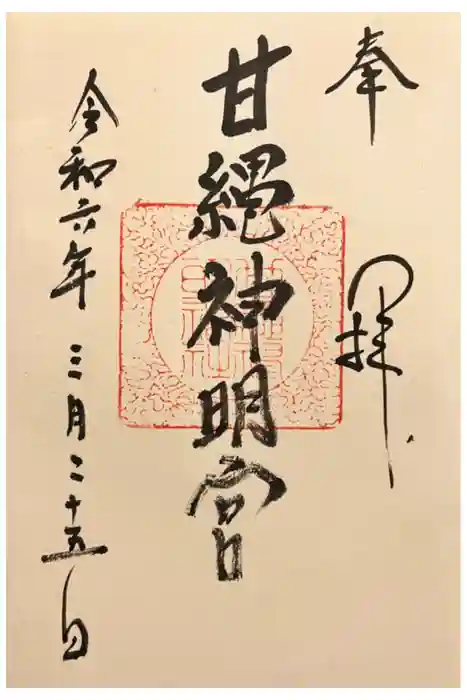 奉拝
甘縄神明宮
令和六年三月二十五日